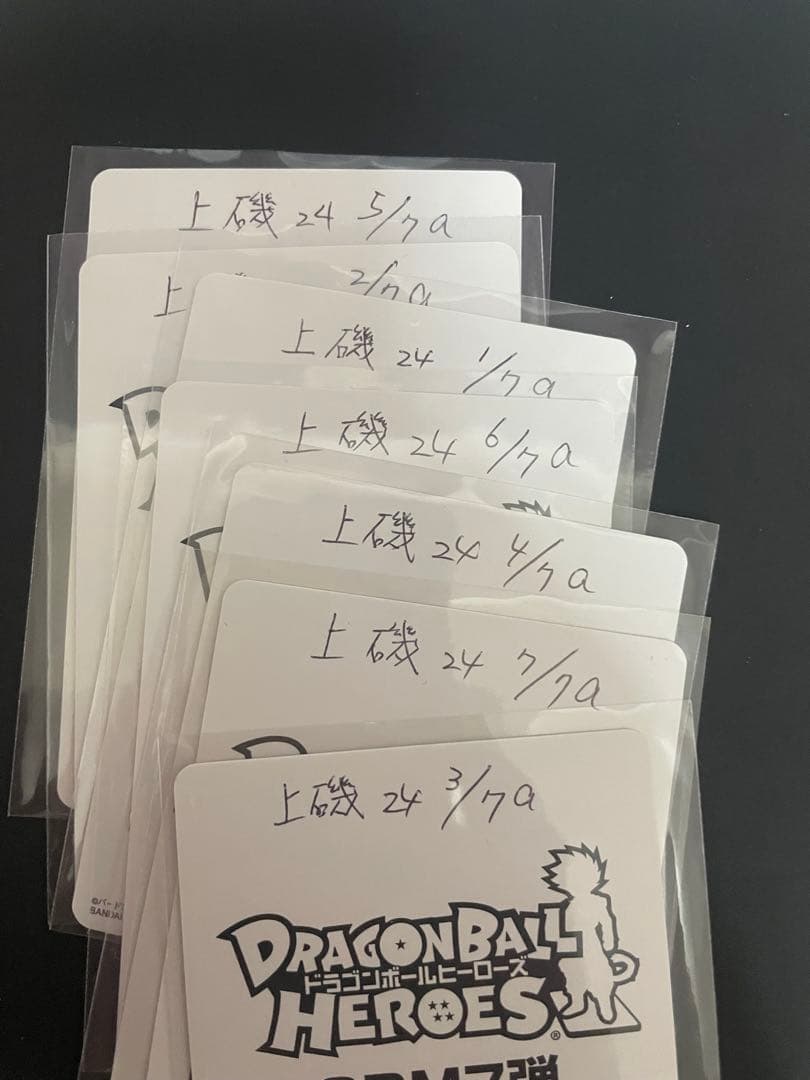 上磯 24 5/7a
上 2/7a
上磯 24 1/7a
上磯 24 6/7a
上磯 24 4/7a
上磯 24 7/7a
上磯 24 3/7a
DRAGONBALL
ドラゴンボールヒーローズ
HEROES®
©バード
BANDAI